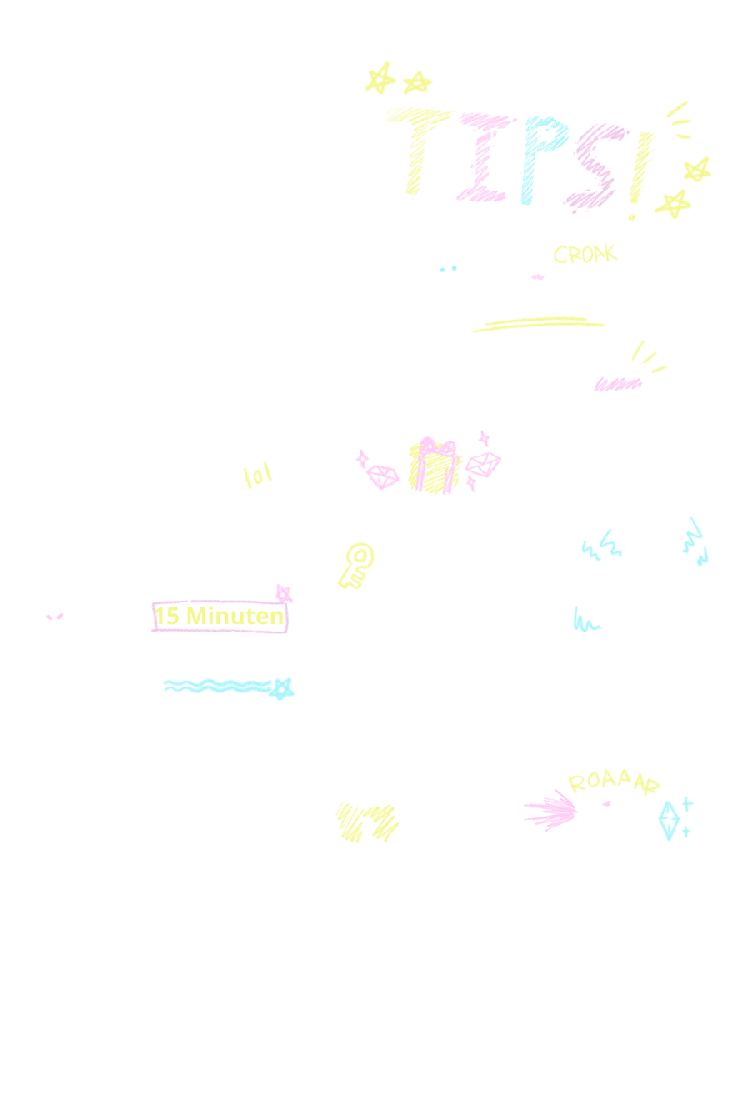 TIPS!
CROAK
15 Minuten
ROAAAR